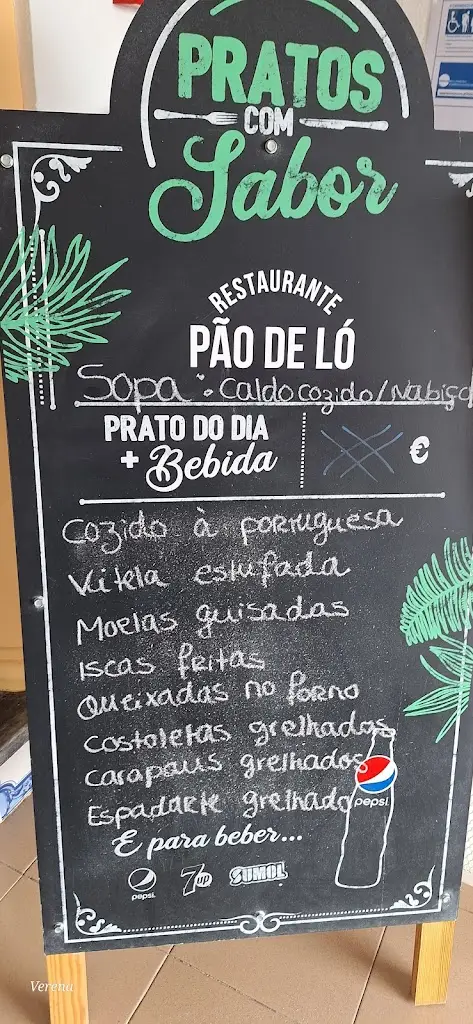 PRATOS
COM
Sabor
RESTAURANTE
PÃO DE LÓ
Sopa: Caldo cozido/Nabiç
PRATO DO DIA
+ Bebida
€
Cozido à portuguesa
Vitela estufada
Moelas guisadas
Iscas fritas
Queixadas no forno
Costoletas grelhadas
Carapaus grelhados
Espadarte grelhado
pepsi
E para beber...
pepsi
7up
SUMOL
Verena